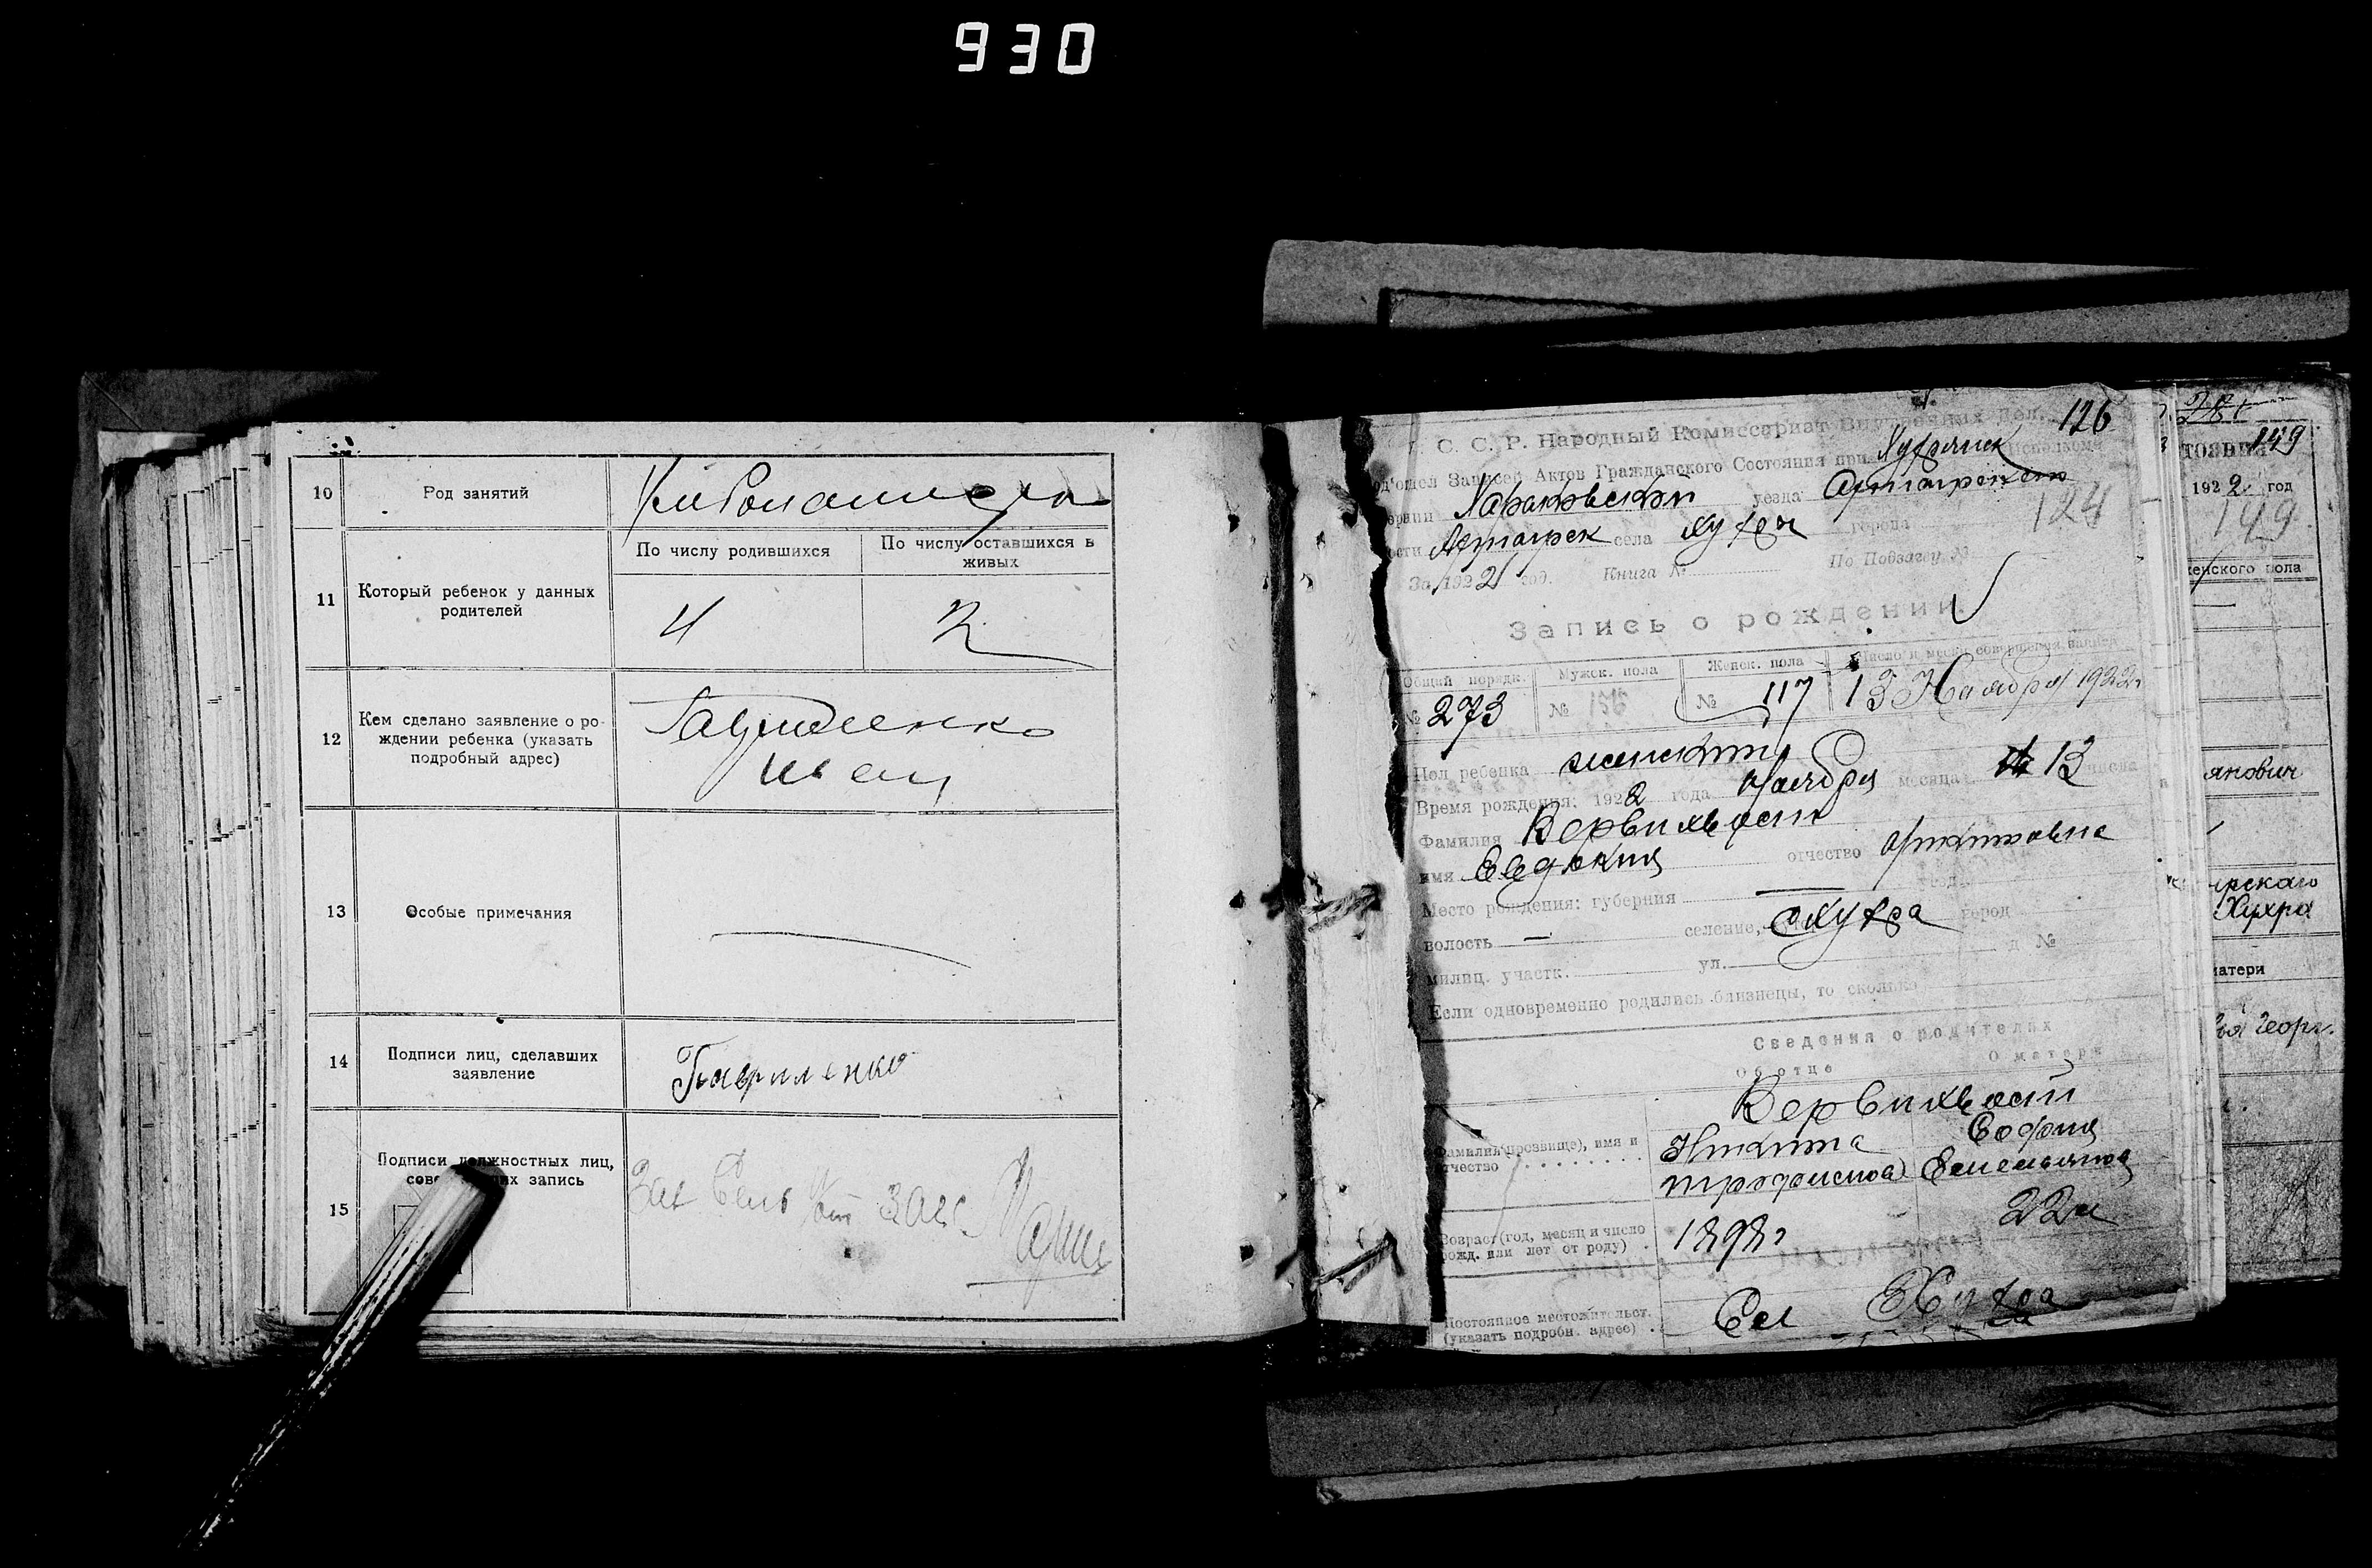 930
10 Род занятий
11 Который ребенок у данных родителей
По числу родившихся
По числу оставшихся в живых
4
2
12 Кем сделано заявление о ро-
ждении ребенка (указать
подробный адрес)
Гавриленко
Иван
13 Особые примечания
14 Подписи лиц, сделавших
заявление
Гавриленко
15 Подписи должностных лиц,
запись
126
С. С. Р. Народный Комиссариат Внутренних Дел.
Записей Актов Гражданского Состояния при
Харьковской уезда
села Хухра города 124
За 1922 год. Книга № По Подзагсу №
Запись о рождении.
Общий порядк. Мужск. пола Женск. пола
№ 273 № 156 № 117 13 Ноября 1922 г
Пол ребенка женский
Время рождения: 1922 года Ноября месяца 13 числа
Фамилия Вербихвост
имя Евдокия отчество Никитовна
Место рождения: губерния — уезд
волость — селение, Хухра город
милиц. участк. ул. д №
Если одновременно родились близнецы, то сколько
Сведения о родителях
Об отце О матери
Вербихвост
Фамилия (прозвище), имя и
отчество
Никита София
Трофимов Емельянов
Возраст (год, месяц и число
рожд. или лет от роду)
1898 г 22 л
Постоянное местожительст.
(указать подробн. адрес)
Сл Хухра
149
1922 год
149
женского пола
янович
рскаго
Хухра
матери
Георг.